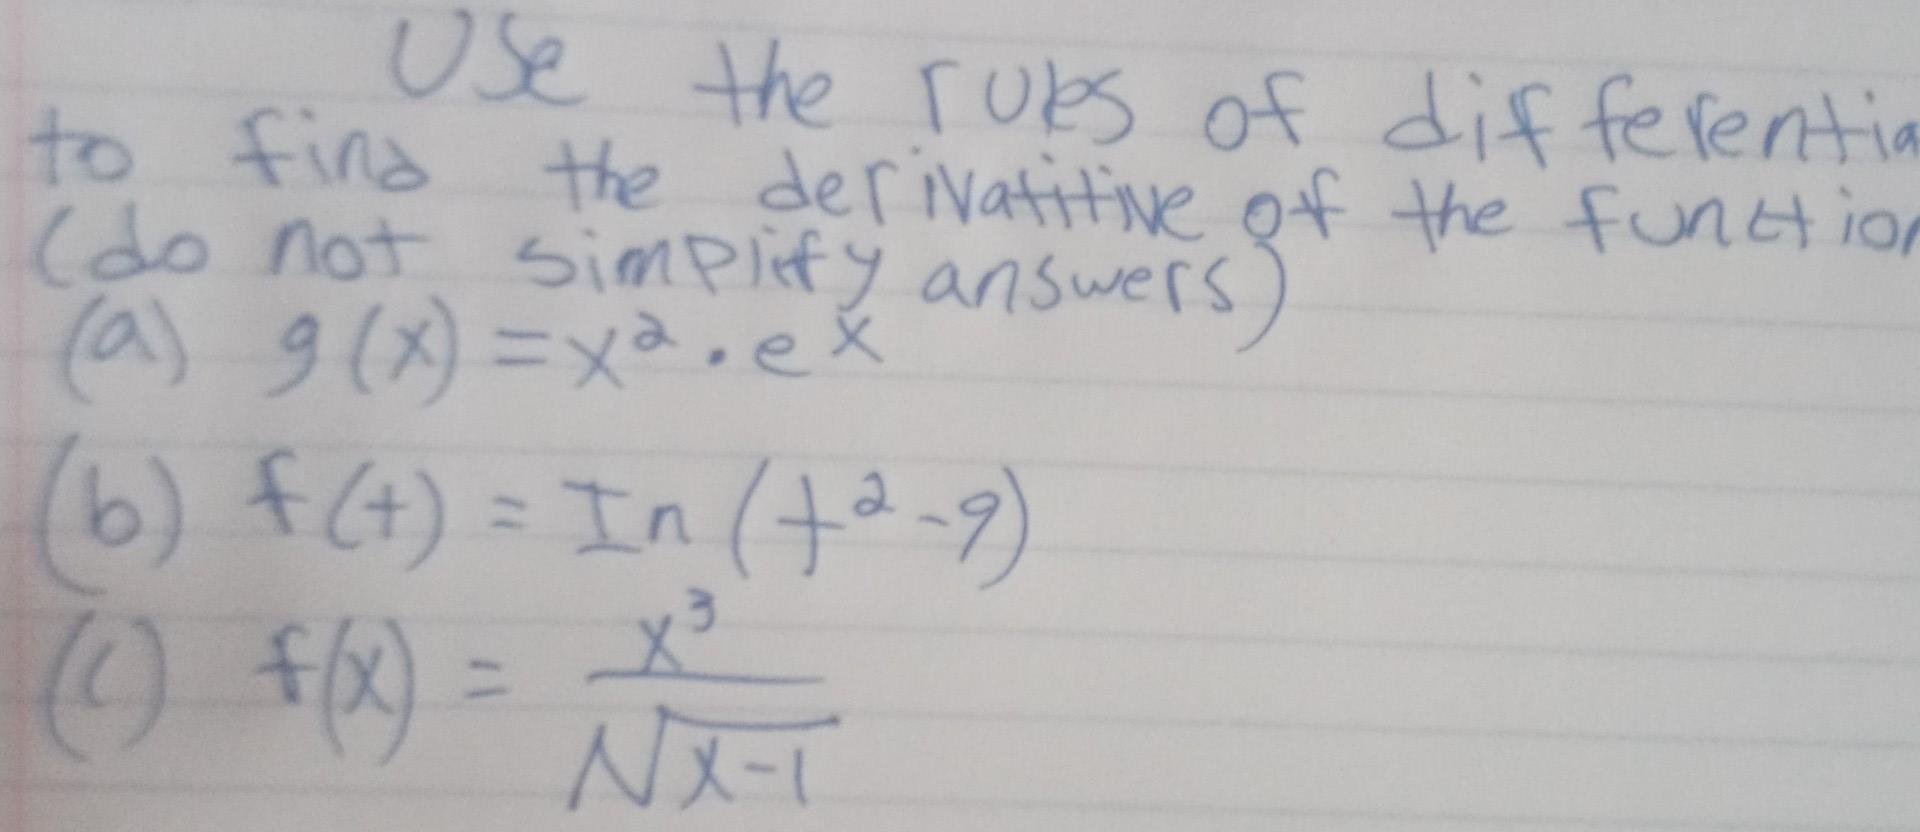 Use the rules of differentia
to find the derivatitive of the function
(do not simplify answers)
(a) g(x) = x² · eˣ
(b) f(t) = In (t² - 9)
(c) f(x) = x³ / √x-1